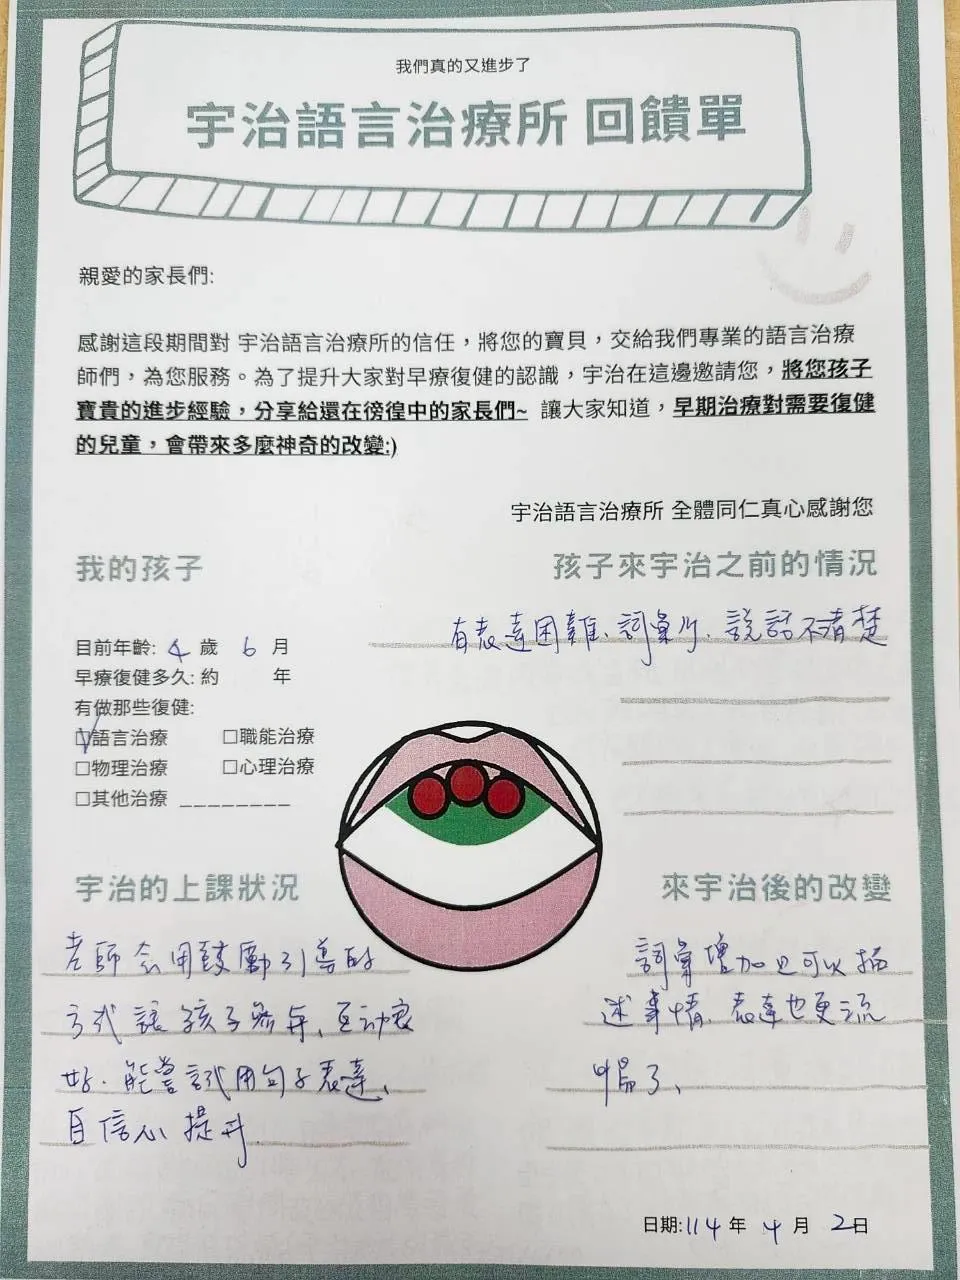 我們真的又進步了
宇治語言治療所 回饋單
親愛的家長們:
感謝這段期間對 宇治語言治療所的信任，將您的寶貝，交給我們專業的語言治療
師們，為您服務。為了提升大家對早療復健的認識，宇治在這邊邀請您，將您孩子
寶貴的進步經驗，分享給還在徬徨中的家長們~ 讓大家知道，早期治療對需要復健
的兒童，會帶來多麼神奇的改變:)
宇治語言治療所 全體同仁真心感謝您
我的孩子
目前年齡: 4 歲 6 月
早療復健多久: 約 年
有做那些復健:
☑語言治療 □職能治療
□物理治療 □心理治療
□其他治療 ________
孩子來宇治之前的情況
有表達困難、詞彙少、說話不清楚
宇治的上課狀況
老師會用鼓勵引導的
方式讓孩子參與、互動良
好．能嘗試用句子表達、
自信心提升
來宇治後的改變
詞彙增加也可以描
述事情 表達也更流
暢了、
日期:114 年 4 月 2日